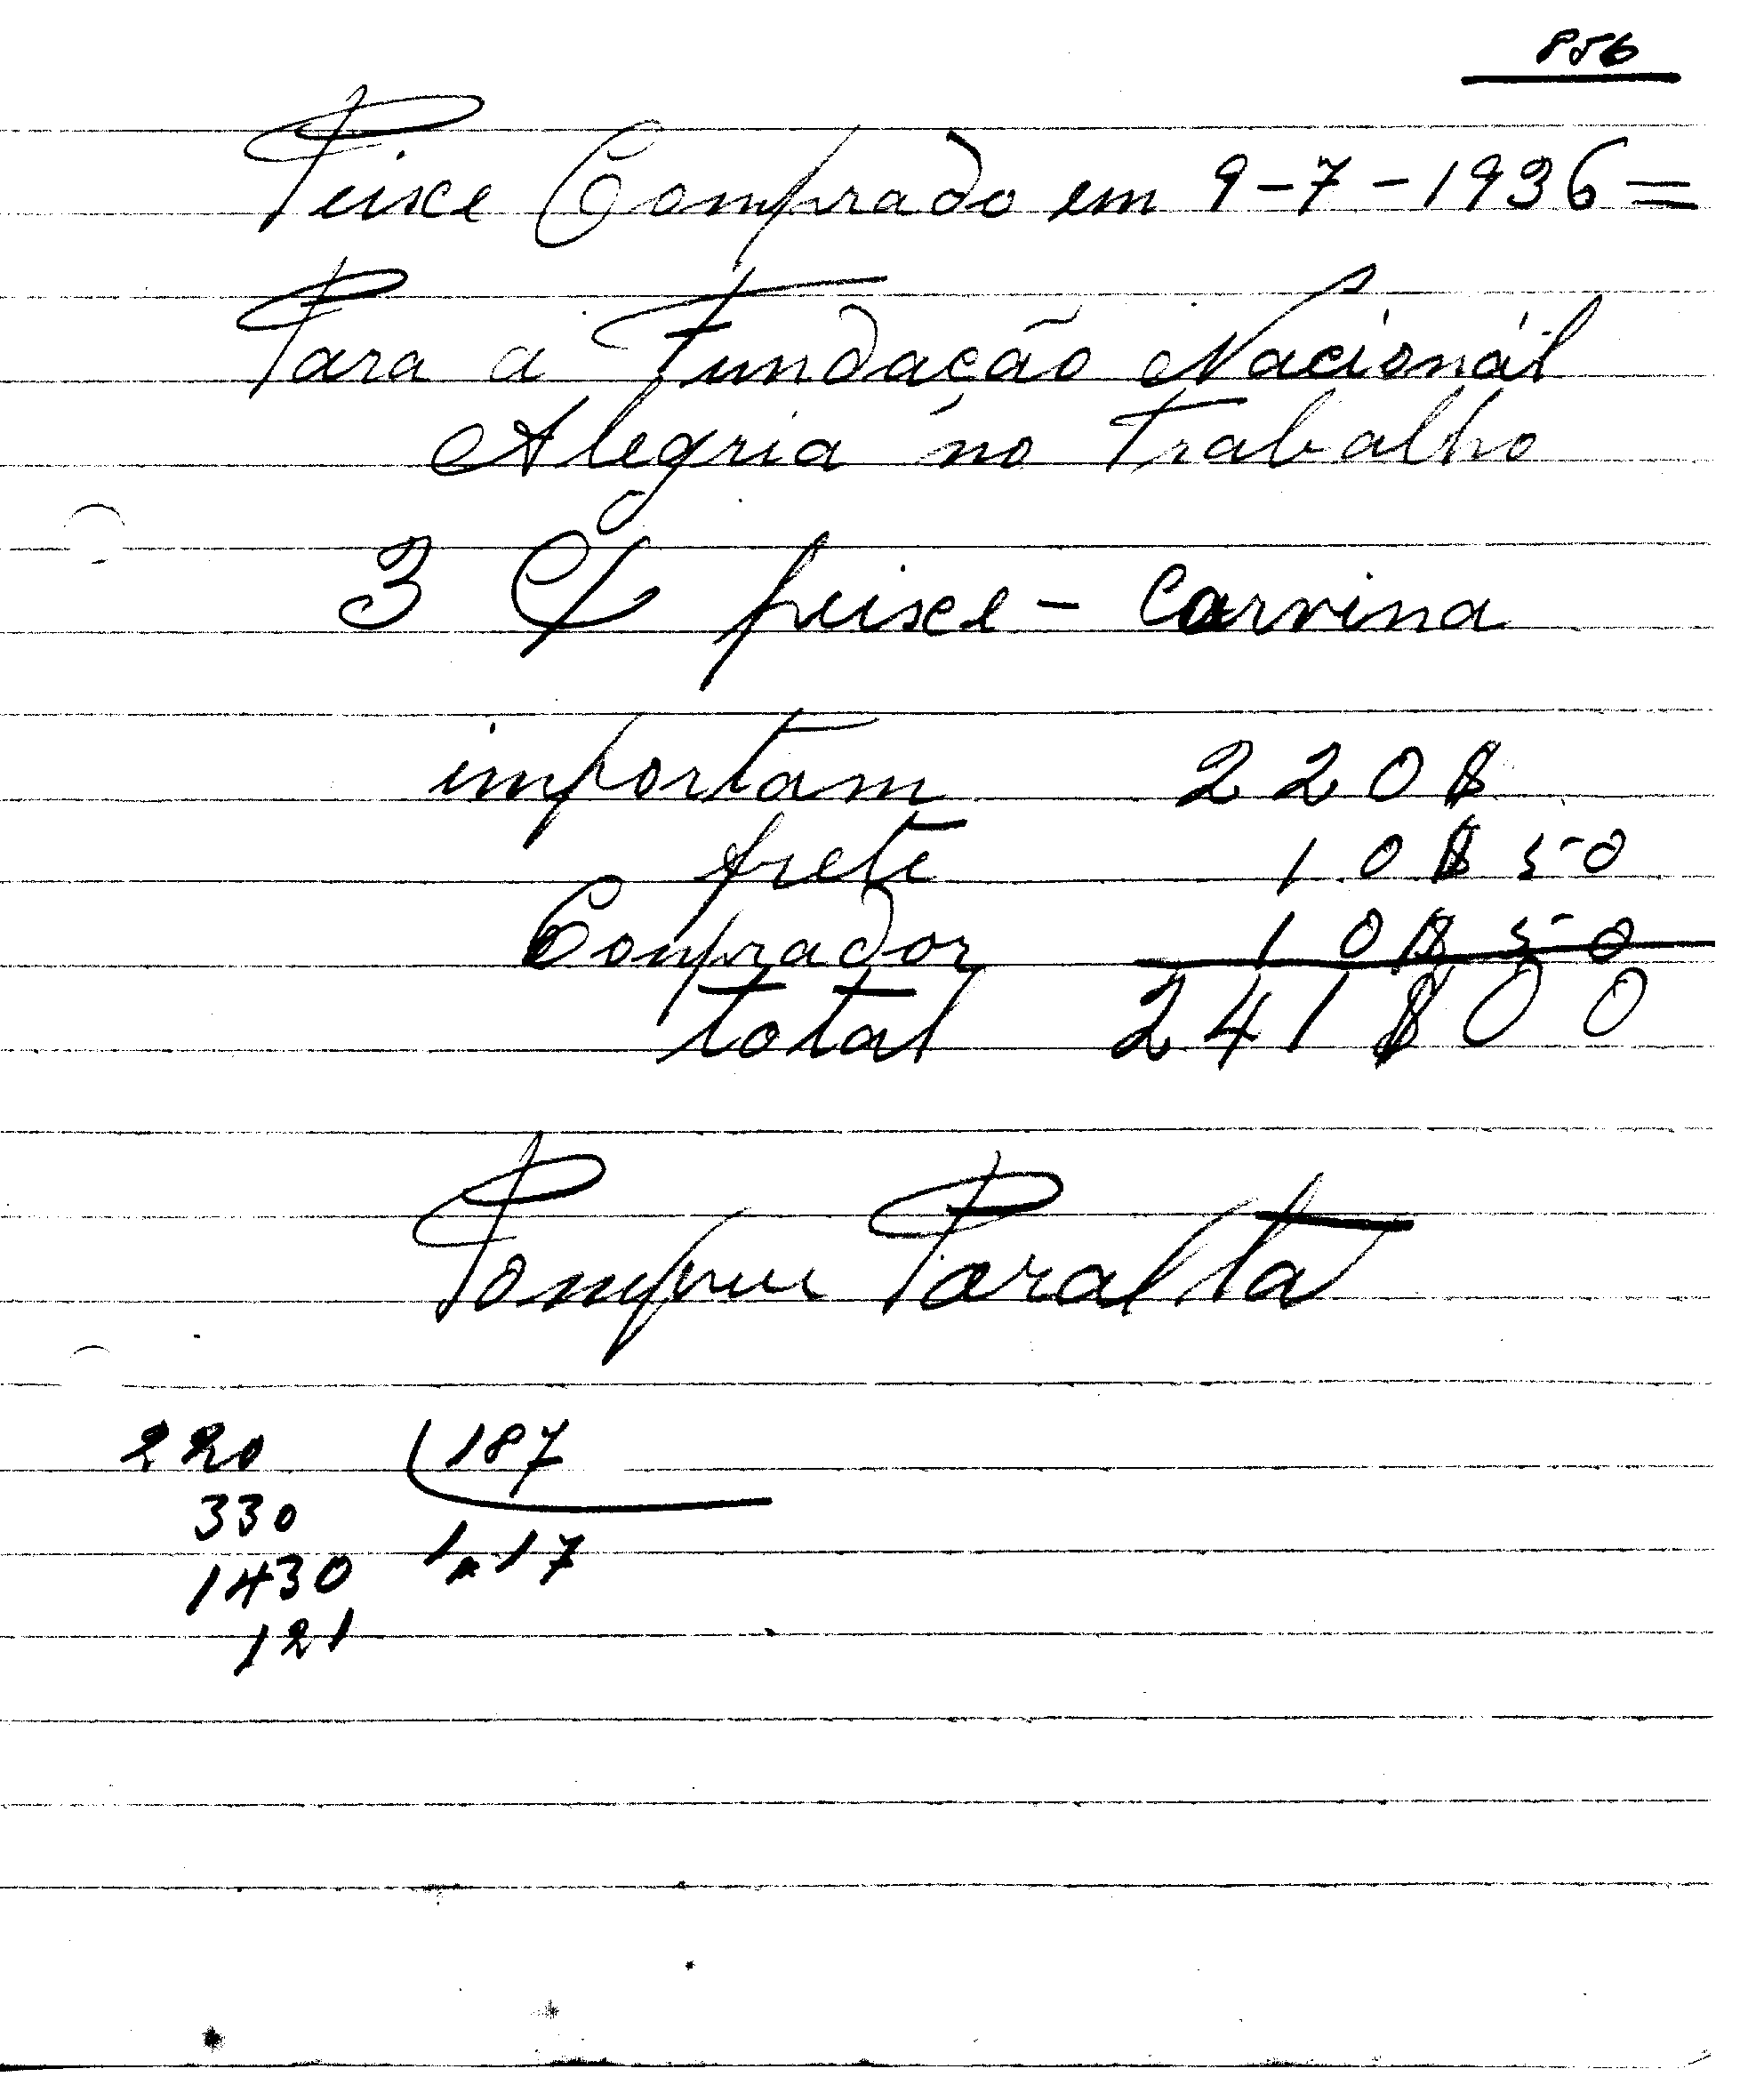 856
Peixe Comprado em 9-7-1936=
Para a Fundação Nacionál
Alegria no Trabalho
3 peixe - Corvina
importam 220$
frete 10$50
Comprador 10$50
total 241$00
Paralta
220 187
330
1430 1,17
121